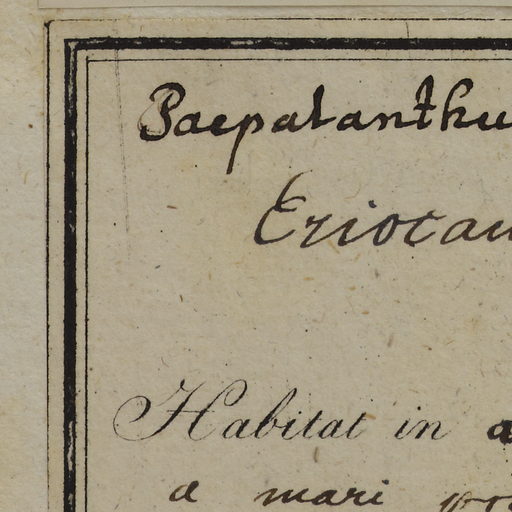 Paepalanthu
Eriocau
Habitat in a
a mari pro